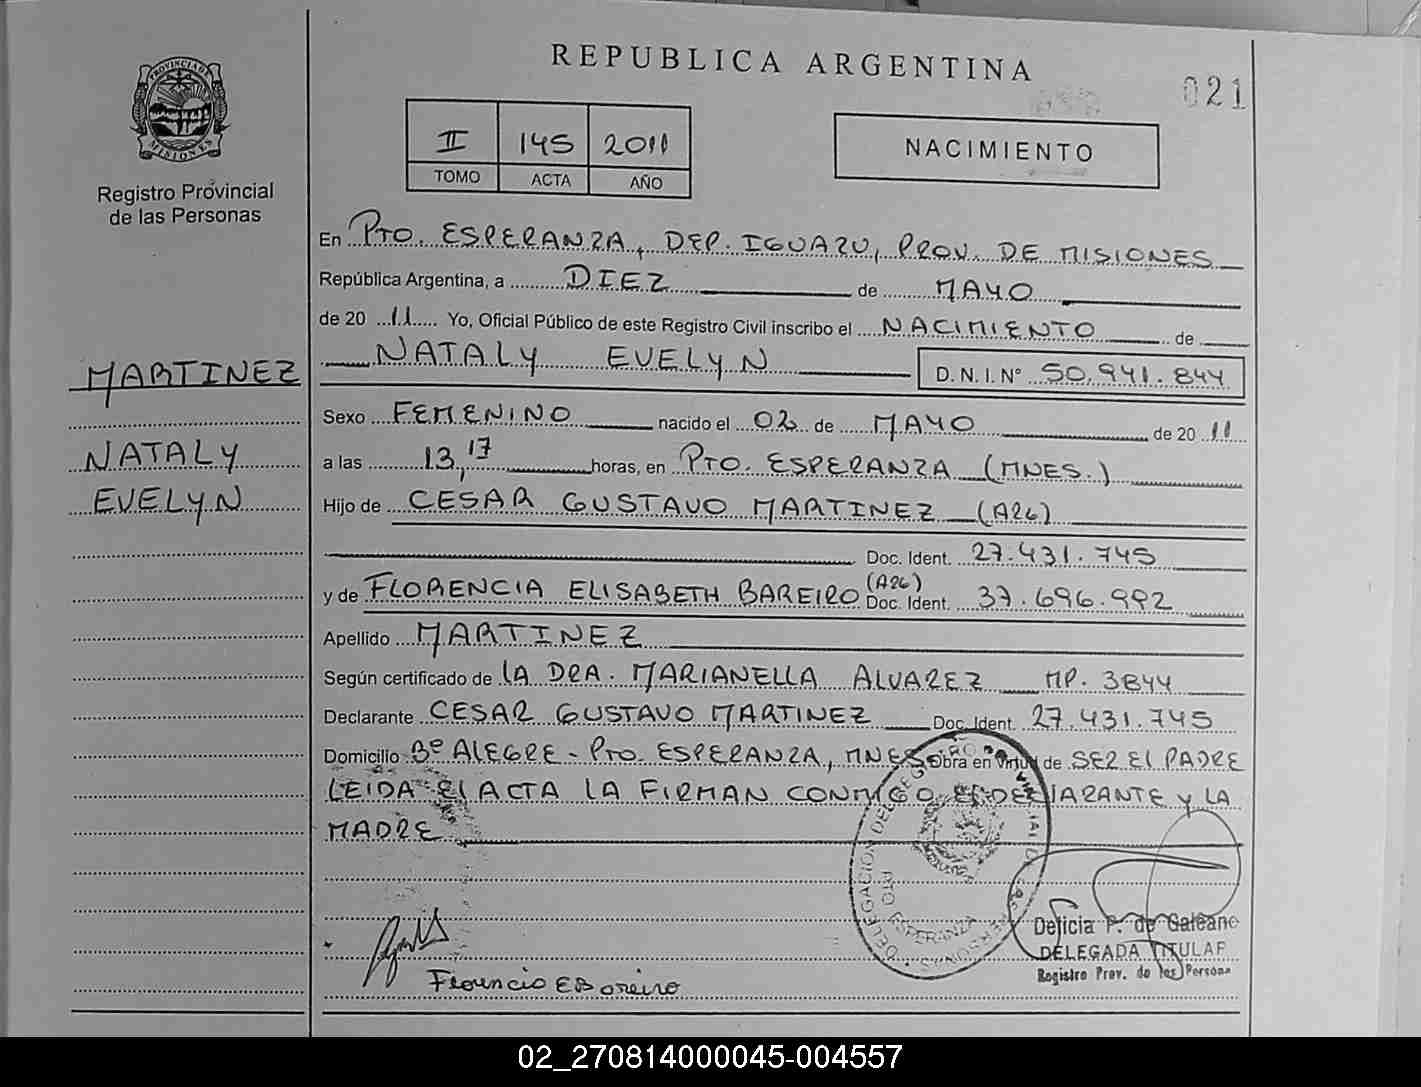 REPUBLICA ARGENTINA
021
PROVINCIA DE
MISIONES
Registro Provincial
de las Personas
II 145 2011
TOMO ACTA AÑO
NACIMIENTO
En PTO. ESPERANZA, DEP. IGUAZU, PROV. DE MISIONES
República Argentina, a DIEZ de MAYO
de 20 11 Yo, Oficial Público de este Registro Civil inscribo el NACIMIENTO de
NATALY EVELYN D.N.I.Nº 50.941.844
MARTINEZ
NATALY
EVELYN
Sexo FEMENINO nacido el 02 de MAYO de 20 11
a las 13,17 horas, en PTO. ESPERANZA (MNES.)
Hijo de CESAR GUSTAVO MARTINEZ (A26)
Doc. Ident. 27.431.745
y de FLORENCIA ELISABETH BAREIRO (A26) Doc. Ident. 37.696.992
Apellido MARTINEZ
Según certificado de LA DRA. MARIANELLA ALVAREZ MP. 3844
Declarante CESAR GUSTAVO MARTINEZ Doc. Ident. 27.431.745
Domicilio Bº ALEGRE - PTO. ESPERANZA, MNES Obra en virtud de SER EL PADRE
LEIDA EL ACTA LA FIRMAN CONMIGO EL DECLARANTE Y LA
MADRE
DELEGACION
PTO ESPERANZA
Delicia P. de Galeano
DELEGADA TITULAR
Registro Prov. de las Persona
02_270814000045-004557